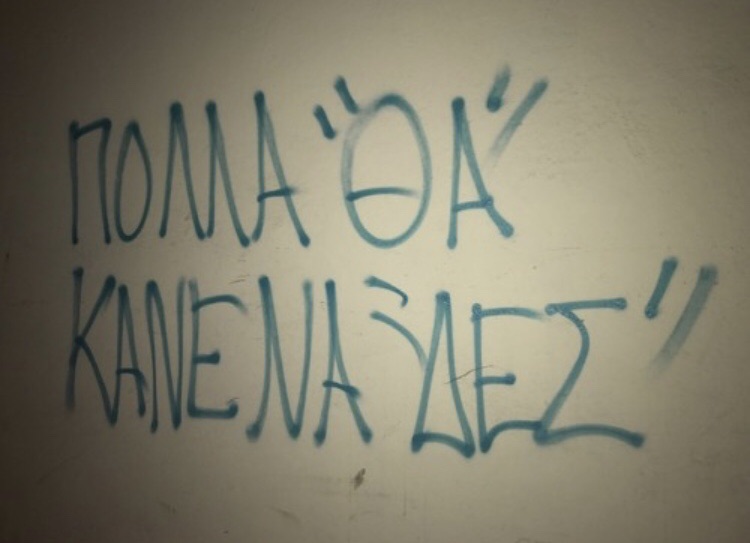 ΠΟΛΛΑ "ΘΑ"
ΚΑΝΕΝΑ "ΔΕΣ"